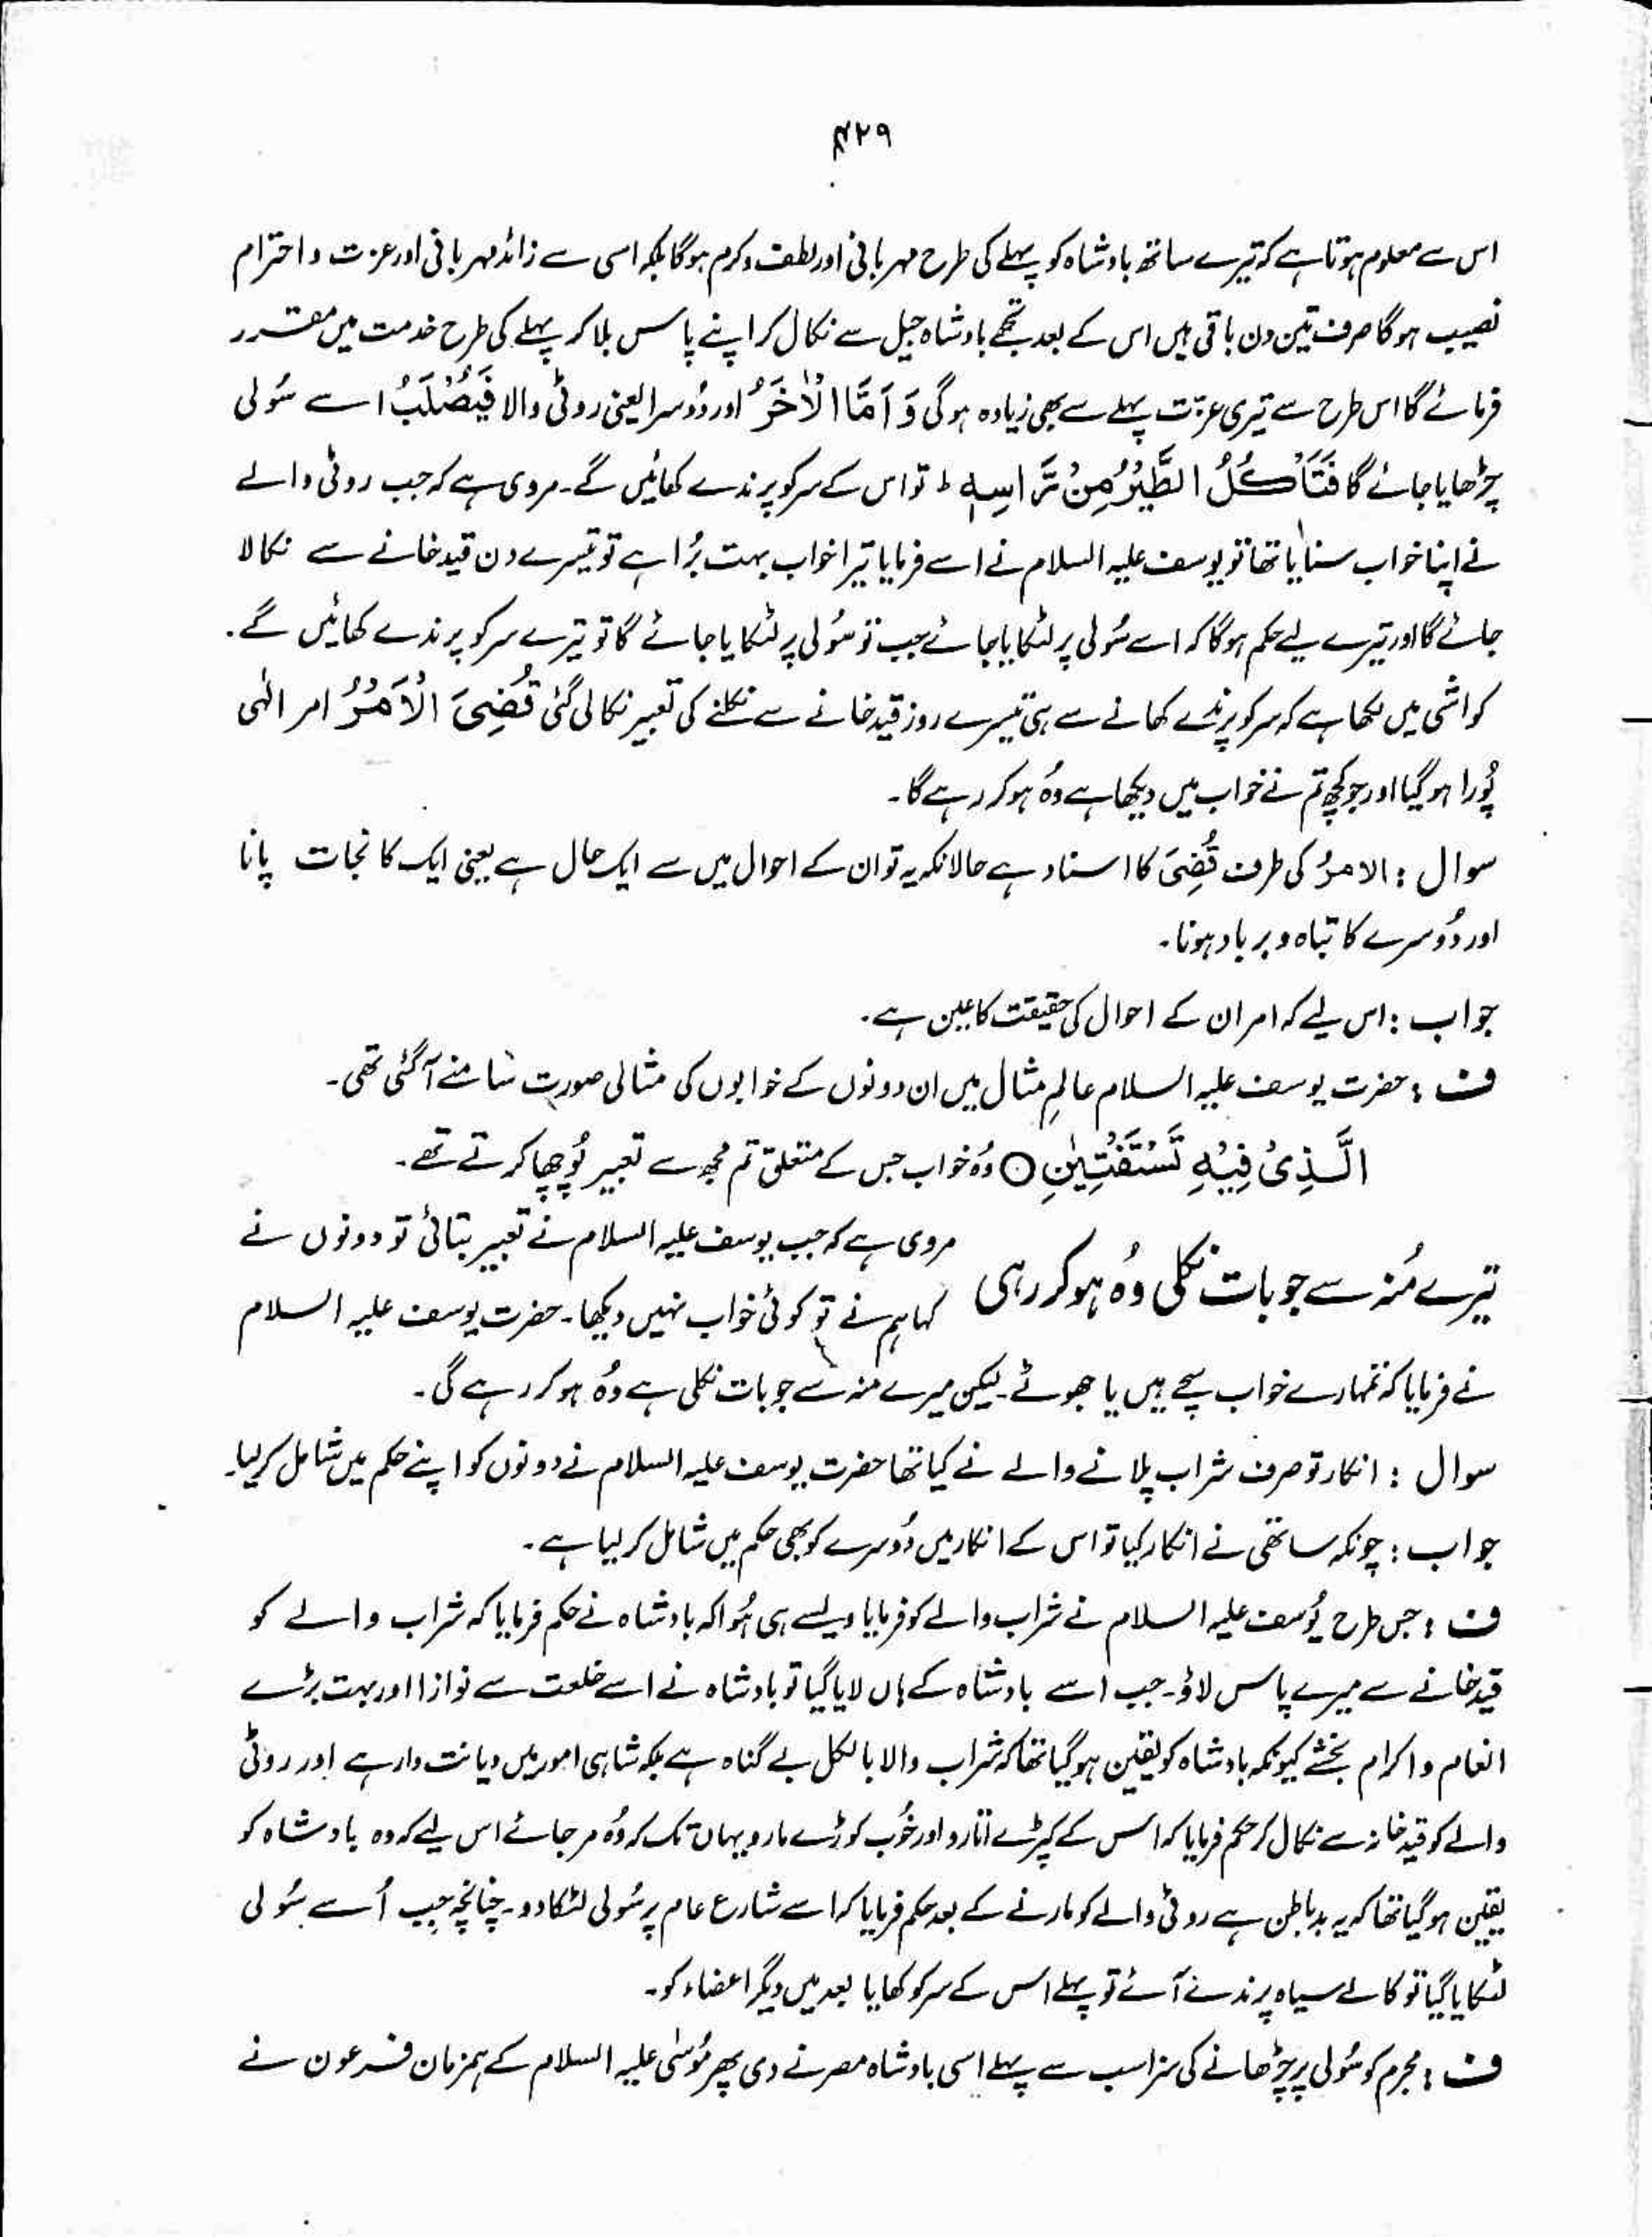 ۴۲۹
اس سے معلوم ہوتا ہے کہ تیرے ساتھ بادشاہ کو پہلے کی طرح مہربانی اور لطف و کرم ہوگا بلکہ اسی سے زائد مہربانی اور عزت و احترام
نصیب ہوگا صرف تین دن باقی ہیں اس کے بعد تجھے بادشاہ جیل سے نکال کر اپنے پاس بلا کر پہلے کی طرح خدمت میں مقرر
فرمائے گا اس طرح سے تیری عزّت پہلے سے بھی زیادہ ہوگی وَ اَمَّا الْاٰخَرُ اور دُوسرا یعنی روٹی والا فَیُصْلَبُ اسے سُولی
چڑھایا جائے گا فَتَاْکُلُ الطَّیْرُ مِنْ رَّاْسِہٖ ط تو اس کے سر کو پرندے کھائیں گے۔ مروی ہے کہ جب روٹی والے
نے اپنا خواب سنایا تھا تو یوسف علیہ السلام نے اسے فرمایا تیرا خواب بہت بُرا ہے تو تیسرے دن قید خانے سے نکالا
جائے گا اور تیرے لیے حکم ہوگا کہ اسے سُولی پر لٹکایا جائے جب تو سُولی پر لٹکایا جائے گا تو تیرے سر کو پرندے کھائیں گے۔
کواشی میں لکھا ہے کہ سر کو پرندے کھانے سے ہی تیسرے روز قید خانے سے نکلنے کی تعبیر نکالی گئی قُضِیَ الْاَمْرُ امر الٰہی
پُورا ہوگیا اور جو کچھ تم نے خواب میں دیکھا ہے وُہ ہو کر رہے گا۔
سوال : الامرُ کی طرف قُضِیَ کا اسناد ہے حالانکہ یہ تو ان کے احوال میں سے ایک حال ہے یعنی ایک کا نجات پانا
اور دُوسرے کا تباہ و برباد ہونا۔
جواب : اس لیے کہ امر ان کے احوال کی حقیقت کا عین ہے۔
ف : حضرت یوسف علیہ السلام عالمِ مثال میں ان دونوں کے خوابوں کی مثالی صورت سامنے آگئی تھی۔
الَّذِیْ فِیْہِ تَسْتَفْتِیٰنِ ○ وُہ خواب جس کے متعلق تم مجھ سے تعبیر پُوچھا کرتے تھے۔
تیرے مُنہ سے جو بات نکلی وُہ ہو کر رہی
مروی ہے کہ جب یوسف علیہ السلام نے تعبیر بتائی تو دونوں نے
کہا ہم نے تو کوئی خواب نہیں دیکھا۔ حضرت یوسف علیہ السلام
نے فرمایا کہ تمہارے خواب سچے ہیں یا جھوٹے۔ لیکن میرے منہ سے جو بات نکلی ہے وُہ ہو کر رہے گی۔
سوال : انکار تو صرف شراب پلانے والے نے کیا تھا حضرت یوسف علیہ السلام نے دونوں کو اپنے حکم میں شامل کرلیا۔
جواب : چونکہ ساتھی نے انکار کیا تو اس کے انکار میں دُوسرے کو بھی حکم میں شامل کر لیا ہے۔
ف : جس طرح یُوسف علیہ السلام نے شراب والے کو فرمایا ویسے ہی ہُوا کہ بادشاہ نے حکم فرمایا کہ شراب والے کو
قید خانے سے میرے پاس لاؤ۔ جب اسے بادشاہ کے ہاں لایا گیا تو بادشاہ نے اسے خلعت سے نوازا اور بہت بڑے
انعام و اکرام بخشے کیونکہ بادشاہ کو یقین ہوگیا تھا کہ شراب والا بالکل بے گناہ ہے بلکہ شاہی امور میں دیانت دار ہے اور روٹی
والے کو قید خانہ سے نکال کر حکم فرمایا کہ اس کے کپڑے اتارو اور خُوب کوڑے مارو یہاں تک کہ وُہ مر جائے اس لیے کہ وہ بادشاہ کو
یقین ہوگیا تھا کہ یہ بد باطن ہے روٹی والے کو مارنے کے بعد حکم فرمایا کہ اسے شارع عام پر سُولی لٹکا دو۔ چنانچہ جب اُسے سُولی
لٹکایا گیا تو کالے سیاہ پرندے آئے تو پہلے اس کے سر کو کھایا بعد میں دیگر اعضاء کو۔
ف : مجرم کو سُولی پر چڑھانے کی سزا سب سے پہلے اسی بادشاہ مصر نے دی پھر مُوسٰی علیہ السلام کے ہمزمان فرعون نے